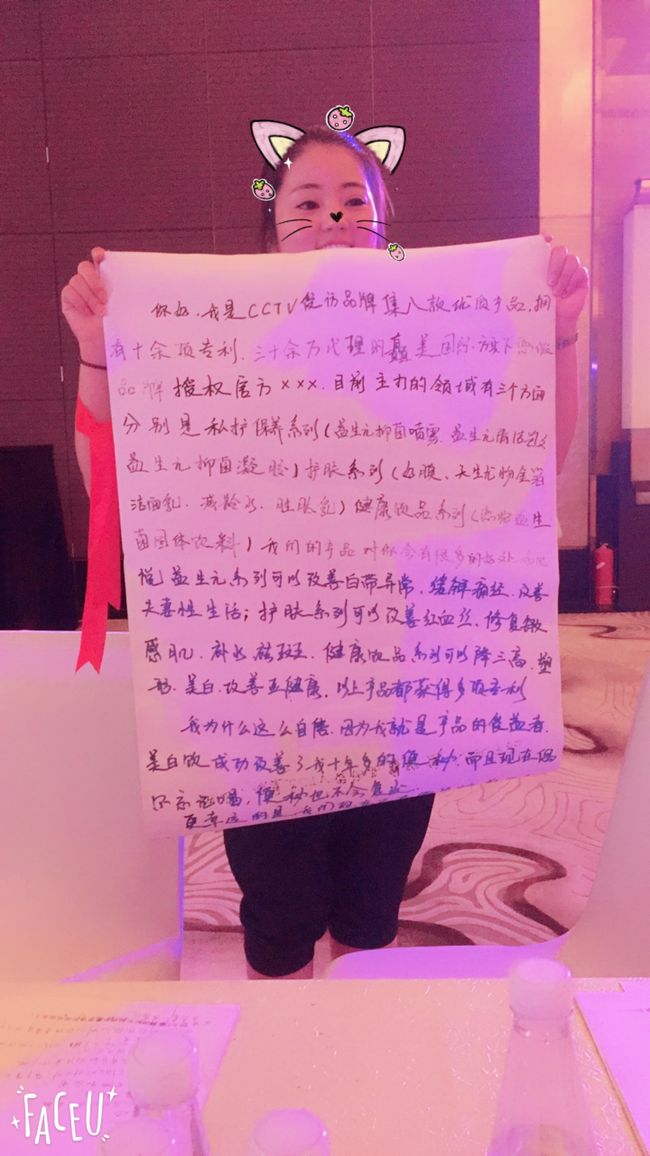 你好，我是CCTV受访品牌集八款优质产品，拥
有十余项专利，三十余万代理的矗美国际方实下
品牌授权官方×××. 目前主打的领域有三个方面
分别是私护保养系列（益生元抑菌喷雾、益生元清洁
益生元抑菌凝胶）护肤系列（面膜、天生尤物
洁面乳、减龄水、胜肽乳）健康饮品系列（益生
菌固体饮料）我们的产品对你会有很多的好处
说益生元系列可以改善白带异常、缓解痛经、改善
夫妻性生活；护肤系列可以改善红血丝、修复敏
感肌、补水祛斑、健康饮品系列可以降三高、塑
形、美白、改善亚健康，以上产品都获得多项专利
我为什么这么自信，因为我就是产品的受益者，
美白饮成功改善了我十年多的便秘，而且现在偶
尔忘记喝，便秘也不会复发
更幸运的是，我们
FACEU